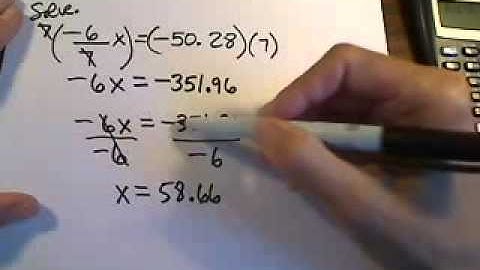 Solve.
7(-6/7 x)=(-50.28)(7)
-6x=-351.96
-6x/-6=-3 /-6
x=58.66